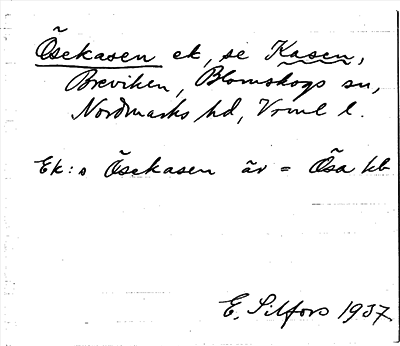 Õsekasen ek, se Kasen,
Breviken, Blomskogs sn,
Nordmarks hd, Vrml l.
Ek:s Õsekasen är = Õsa kb
E. Silfors 1937